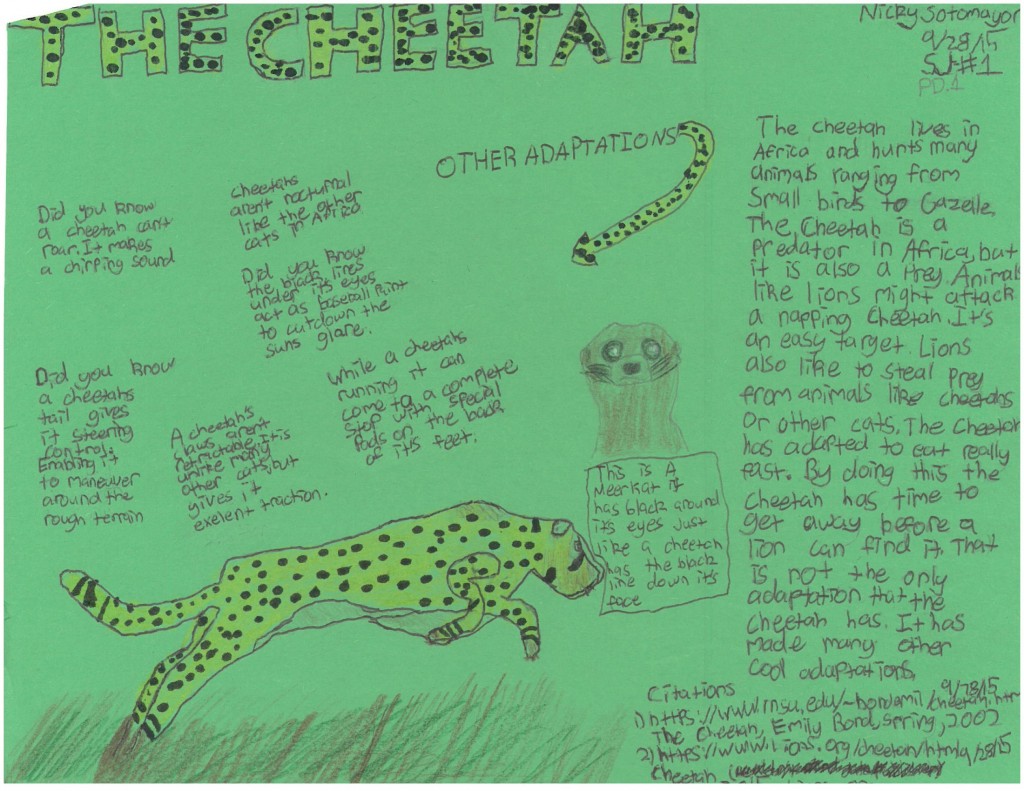 THE CHEETAH
Nicky Sotomayor
9/28/15
SJ#1
PD.1
OTHER ADAPTATIONS
Did you know
a cheetah can't
roar. It makes
a chirping sound
cheetahs
aren't nocturnal
like the other
cats in Africa
Did you know
the black lines
under its eyes
act as baseball paint
to cutdown the
suns glare.
Did you know
a cheetahs
tail gives
it steering
control.
Enabling it
to maneuver
around the
rough terrain
A cheetah's
claws arent
retractable. It is
unlike many
other cats, but
gives it
exelent traction.
while a cheetahs
running it can
come to a complete
stop with special
Pads on the back
of it's feet.
This is A
Meerkat it
has black around
it's eyes just
like a cheetah
has the black
line down it's
face
The cheetah lives in
Africa and hunts many
animals ranging from
Small birds to Gazelle.
The Cheetah is a
Predator in Africa, but
it is also a Prey. Animals
like lions might attack
a napping Cheetah. It's
an easy target. Lions
also like to steal prey
from animals like cheetahs
Or other cats. The Cheetah
has adapted to eat really
fast. By doing this the
Cheetah has time to
get away before a
lion can find it. That
is not the only
adaptation that the
cheetah has. It has
made many other
cool adaptations.
Citations 9/28/15
The Cheetah, Emily Bond, Spring, 2002
Cheetah